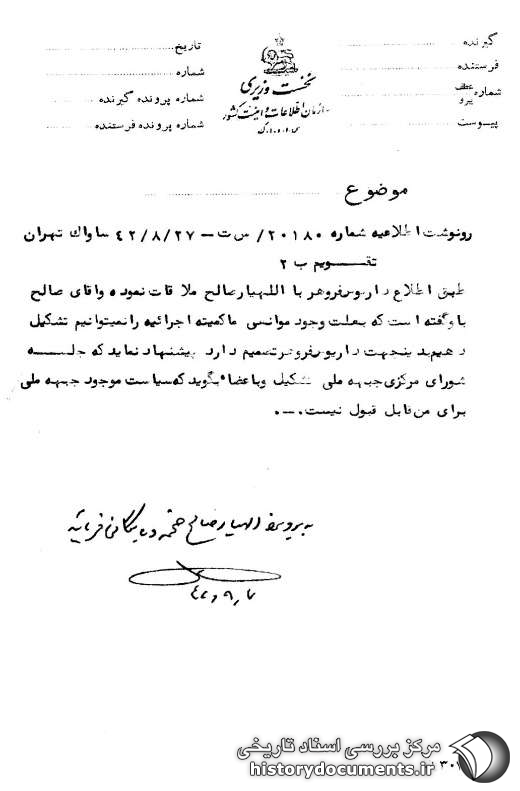 گیرنده
فرستنده
شماره عطف
پیرو
پیوست
نخست وزیری
سازمان اطلاعات و امنیت کشور
س.ا.و.ا.ک
تاریخ
شماره
شماره پرونده گیرنده
شماره پرونده فرستنده
موضوع
رونوشت اطلاعیه شماره ۲۰۱۸۰/ س ت – ۴۲/۸/۲۷ ساواک تهران
تقسویم ب ۲
طبق اطلاع داریوش فروهر با اللهیار صالح ملاقات نموده و آقای صالح
باو گفته است که بعلت وجود موانعی ما کمیته اجرائیه را نمیتوانیم تشکیل
دهیم بدینجهت داریوش فروهر تصمیم دارد پیشنهاد نماید که جلسه
شورای مرکزی جبهه ملی تشکیل و باعضاء بگوید که سیاست موجود جبهه ملی
برای من قابل قبول نیست.-.
به پرونده اللهیار صالح ضمیمه و بایگانی فرمائید
مرکز بررسی اسناد تاریخی
historydocuments.ir